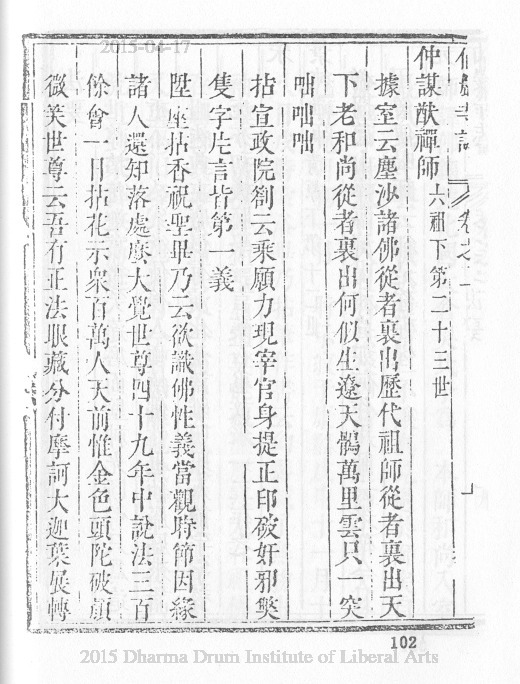 2015-04-17
仲謀猷禪師 六祖下第二十三世
據室云塵沙諸佛從者裏出歷代祖師從者裏出天
下老和尚從者裏出何似生遼天鶻萬里雲只一突
咄咄咄
拈宣政院劄云乘願力現宰官身提正印破奸邪獘
隻字片言皆第一義
陞座拈香祝聖畢乃云欲識佛性義當觀時節因緣
諸人還知落處麼大覺世尊四十九年中說法三百
餘會一日拈花示衆百萬人天前惟金色頭陀破顏
微笑世尊云吾有正法眼藏分付摩訶大迦葉展轉
102
2015 Dharma Drum Institute of Liberal Arts